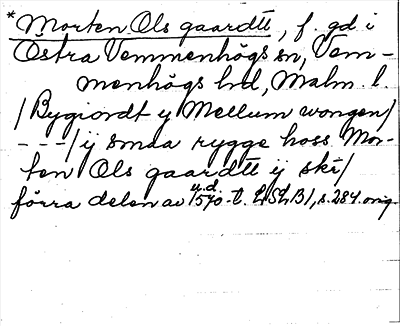 * Morten Ols gaardtt, f. gd i
Östra Vemmenhögs sn, Vem-
menhögs hd, Malm. l.
/Bygiordt y Mellum wongen/
---/ij smaa rygge hoss Mor-
ten Ols gaardtt ij ski/
förra delen av u.d. 1570-t. LSLB1, s. 284. orig.